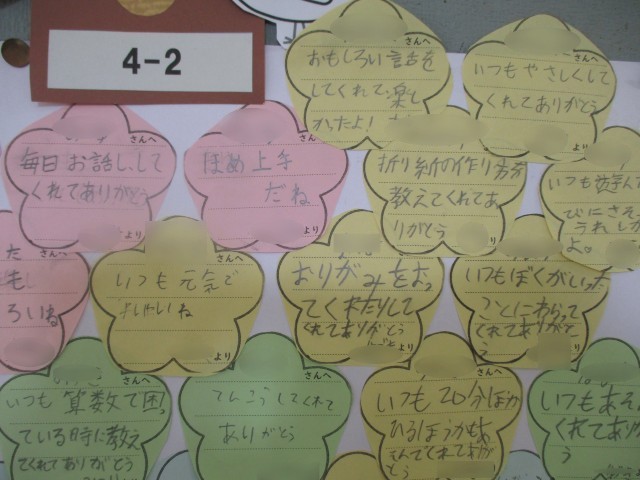 4-2
さんへ
おもしろい話を
してくれて楽し
かったよ!
さんへ
いつもやさしくして
くれてありがとう
より
さんへ
毎日お話しして
くれてありがとう
より
さんへ
ほめ上手
だね
より
折り紙の作り方を
教えてくれてあ
りがとう
り
いつも遊んで
びにさそ
うれしか
よ。
た
も
ろいね
いつも元気で
いいね
より
さんへ
おりがみをおっ
てくれたりして
くれてありがとう
より
さんへ
いつもぼくがいった
ことにわらって
くれてありがと
う
より
さんへ
いつも算数で困っ
ている時に教え
てくれてありがとう
さんへ
てんこうしてくれて
ありがとう
さんへ
いつも20分ほうか
ひるほうかもあ
そんでくれてありが
とう
より
いつもあそ
くれてありが
う